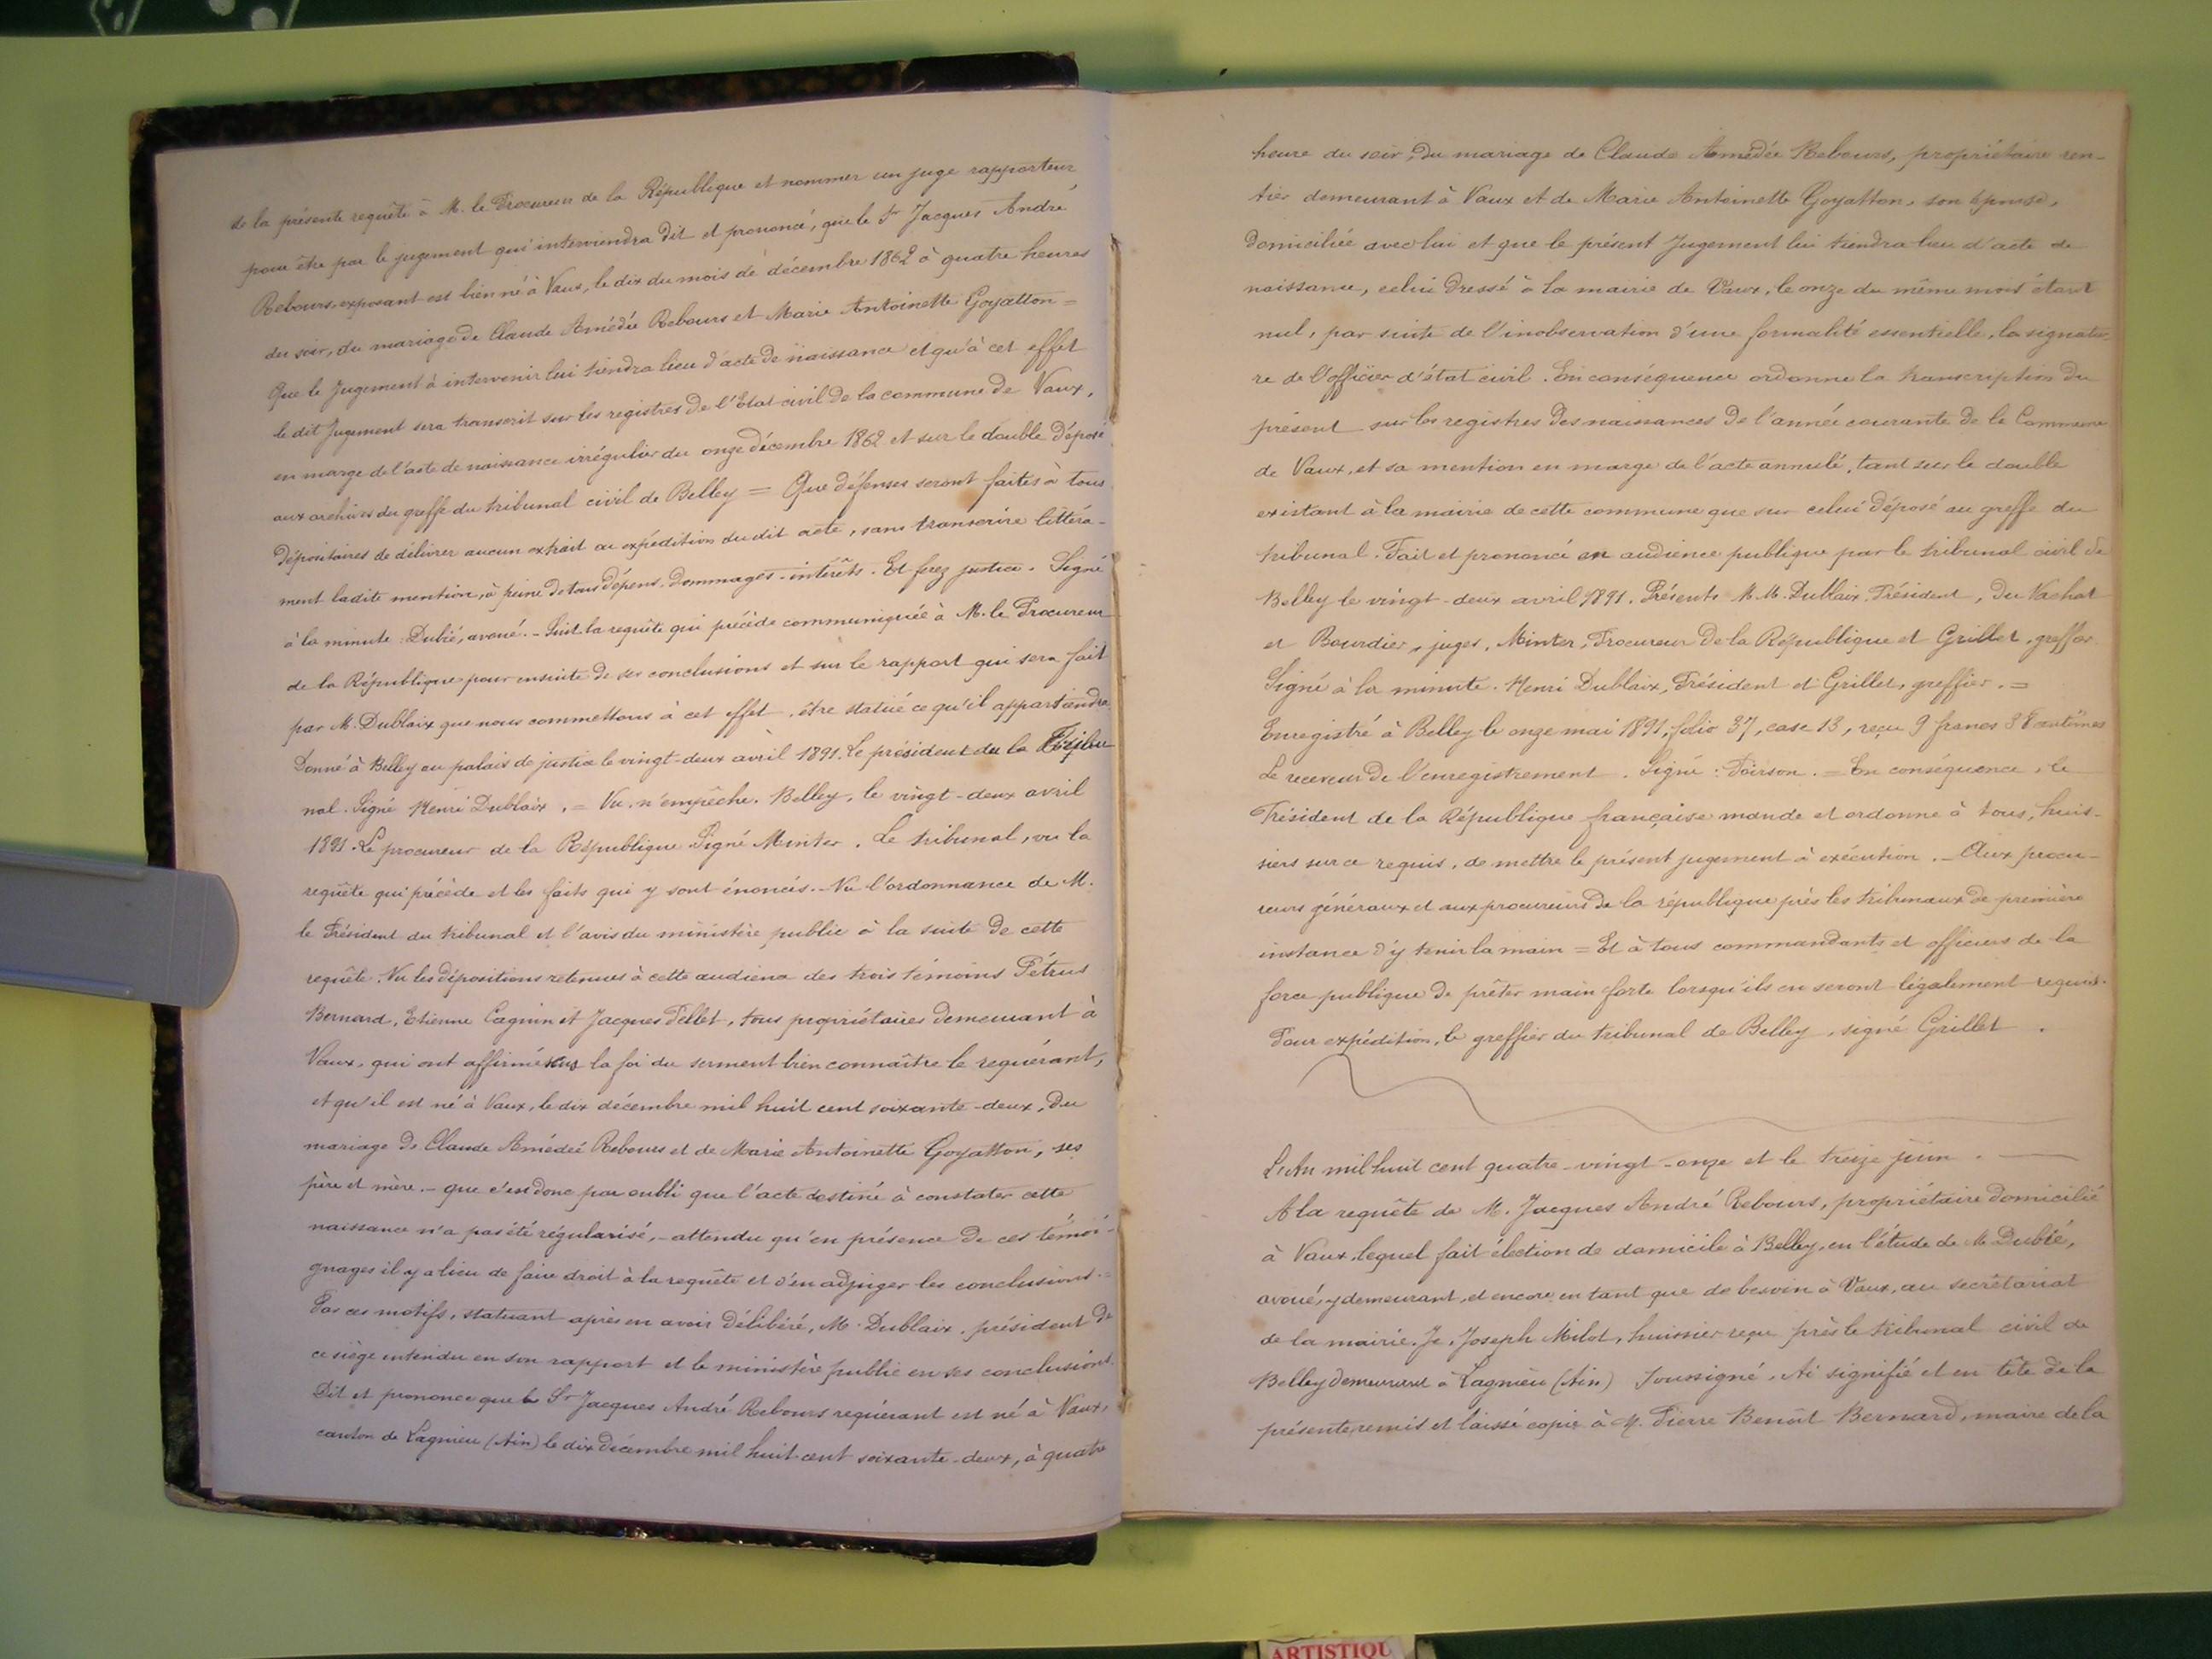 de la présente requête à M. le Procureur de la République et nommer un juge rapporteur
pour être par le jugement qui interviendra dit et prononcé, que le Sr Jacques André
Rebours, exposant est bien né à Vaux, le dix du mois de décembre 1862 à quatre heures
du soir, du mariage de Claude Amédée Rebours et Marie Antoinette Goyatton =
Que le Jugement à intervenir lui tiendra lieu d'acte de naissance et qu'à cet effet
le dit Jugement sera transcrit sur les registres de l'Etat civil de la commune de Vaux,
en marge de l'acte de naissance irrégulier du onze décembre 1862 et sur le double déposé
aux archives du greffe du tribunal civil de Belley = Que défenses seront faites à tous
dépositaires de délivrer aucun extrait ou expédition du dit acte, sans transcrire littéra-
ment ladite mention, à peine de tous dépens, dommages-intérêts. Et ferez justice. Signé
à la minute : Dubié, avoué. - Soit la requête qui précède communiquée à M. le Procureur
de la République pour ensuite de ses conclusions et sur le rapport qui sera fait
par M. Dublaix que nous commettons à cet effet, être statué ce qu'il appartiendra.
Donné à Belley au palais de justice le vingt-deux avril 1891. Le président du la Tribu
nal. Signé Henri Dublaix. = Vu, n'empêche. Belley, le vingt-deux avril
1891. Le procureur de la République Signé Minter. Le tribunal, vu la
requête qui précède et les faits qui y sont énoncés. - Vu l'ordonnance de M.
le Président du tribunal et l'avis du ministère public à la suite de cette
requête. Vu les dépositions retenues à cette audience des trois témoins Pétrus
Bernard, Etienne Cagnin et Jacques Pellet, tous propriétaires demeurant à
Vaux, qui ont affirmé sous la foi du serment bien connaître le requérant,
et qu'il est né à Vaux, le dix décembre mil huit cent soixante-deux, du
mariage de Claude Amédée Rebours et de Marie Antoinette Goyatton, ses
père et mère. - que c'est donc par oubli que l'acte destiné à constater cette
naissance n'a pas été régularisé, - attendu qu'en présence de ces témoi-
gnages il y a lieu de faire droit à la requête et d'en adjuger les conclusions. =
Par ces motifs, statuant après en avoir délibéré, M. Dublaix, président de
ce siège entendu en son rapport et le ministère public en ses conclusions.
Dit et prononce que le Sr Jacques André Rebours requérant est né à Vaux,
canton de Lagnieu (Ain) le dix décembre mil huit cent soixante-deux, à quatre
heure du soir, du mariage de Claude Amédée Rebours, propriétaire ren-
tier demeurant à Vaux et de Marie Antoinette Goyatton, son épouse,
domiciliée avec lui et que le présent Jugement lui tiendra lieu d'acte de
naissance, celui dressé à la mairie de Vaux, le onze du même mois étant
nul, par suite de l'inobservation d'une formalité essentielle, la signatu-
re de l'officier d'état civil. En conséquence ordonne la transcription du
présent sur les registres des naissances de l'année courante de la Commune
de Vaux, et sa mention en marge de l'acte annulé, tant sur le double
existant à la mairie de cette commune que sur celui déposé au greffe du
tribunal. Fait et prononcé en audience publique par le tribunal civil de
Belley le vingt-deux avril 1891. Présents M.M. Dublaix, Président, Du Vachat
et Bourdier, juges, Minter, Procureur de la République et Grillet, greffier.
Signé à la minute. Henri Dublaix, Président et Grillet, greffier. =
Enregistré à Belley le onze mai 1891, folio 37, case 13, reçu 9 francs 38 centimes
Le receveur de l'enregistrement. Signé : Poirson. = En conséquence, le
Président de la République française mande et ordonne à tous, huis-
siers sur ce requis, de mettre le présent jugement à exécution. - Aux procu-
reurs généraux et aux procureurs de la république près les tribunaux de première
instance d'y tenir la main = Et à tous commandants et officiers de la
force publique de prêter main forte lorsqu'ils en seront légalement requis.
Pour expédition, le greffier du tribunal de Belley, signé Grillet.
L'An mil huit cent quatre-vingt-onze et le treize juin.
A la requête de M. Jacques André Rebours, propriétaire domicilié
à Vaux, lequel fait élection de domicile à Belley, en l'étude de Me Dubié,
avoué, y demeurant, et encore en tant que de besoin à Vaux, au secrétariat
de la mairie. Je, Joseph Milot, huissier reçu près le tribunal civil de
Belley demeurant à Lagnieu (Ain) Soussigné, Ai signifié et en tête de la
présente, remis et laissé copie à M. Pierre Benoît Bernard, maire de la
ARTISTIQU